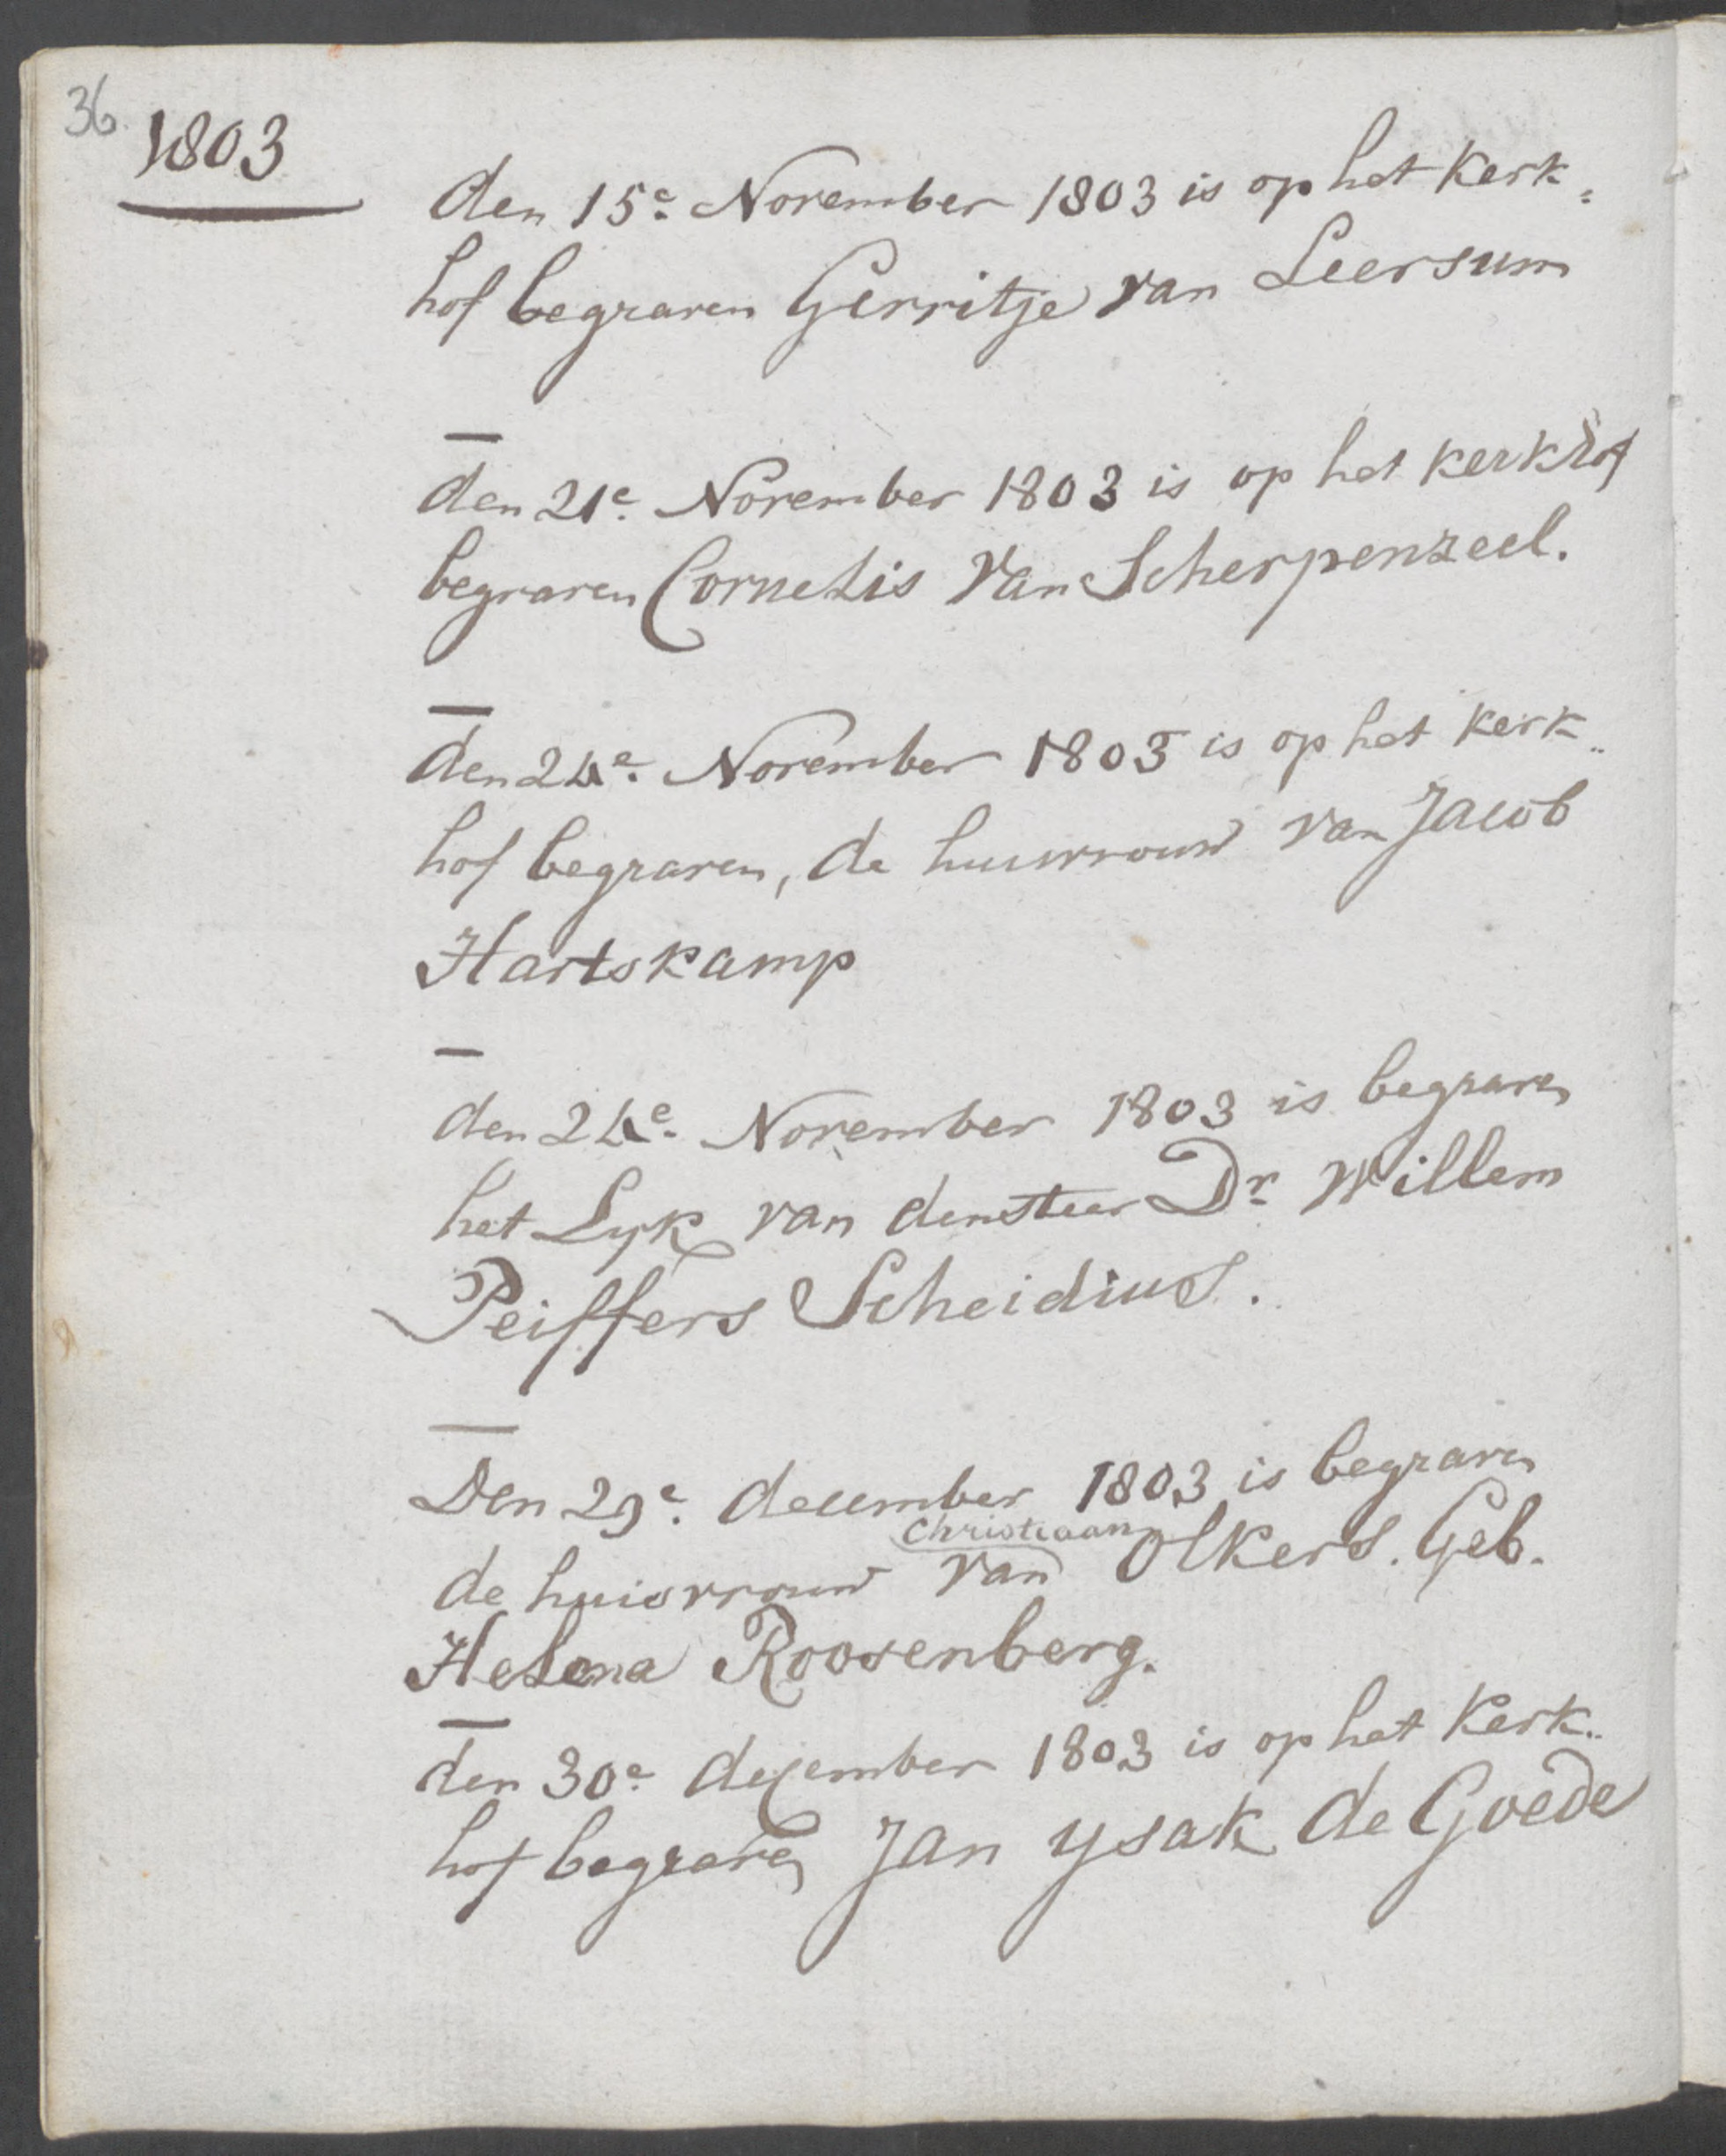 36.
1803
den 15e. November 1803 is op het Kerk=
hof begraven Gerritje van Leersum
den 21e. November 1803 is op het kerkhof
begraven Cornelis van Scherpenzeel.
den 24e. November 1803 is op het kerk=
hof begraven, de huisvrouw van Jacob
Hartskamp
den 24e. November 1803 is begraven
het Lyk van den Heer Dr Willem
Peiffers Scheidius.
Den 29e. december 1803 is begraven
Christiaan
de huisvrouw van Olkers. Geb.
Helena Roosenberg.
den 30e december 1803 is op het Kerk=
hof begraven Jan ysak de Goede